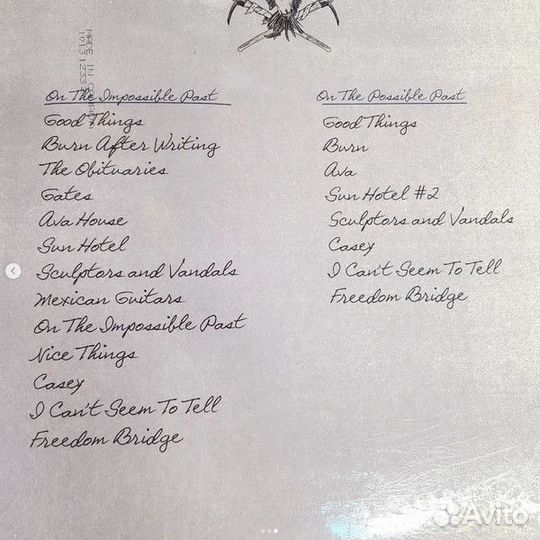 On The Impossible Past
Good Things
Burn After Writing
The Obituaries
Gates
Ava House
Sun Hotel
Sculptors and Vandals
Mexican Guitars
On The Impossible Past
Nice Things
Casey
I Can't Seem To Tell
Freedom Bridge
On The Possible Past
Good Things
Burn
Ava
Sun Hotel #2
Sculptors and Vandals
Casey
I Can't Seem To Tell
Freedom Bridge
MADE IN
Avito